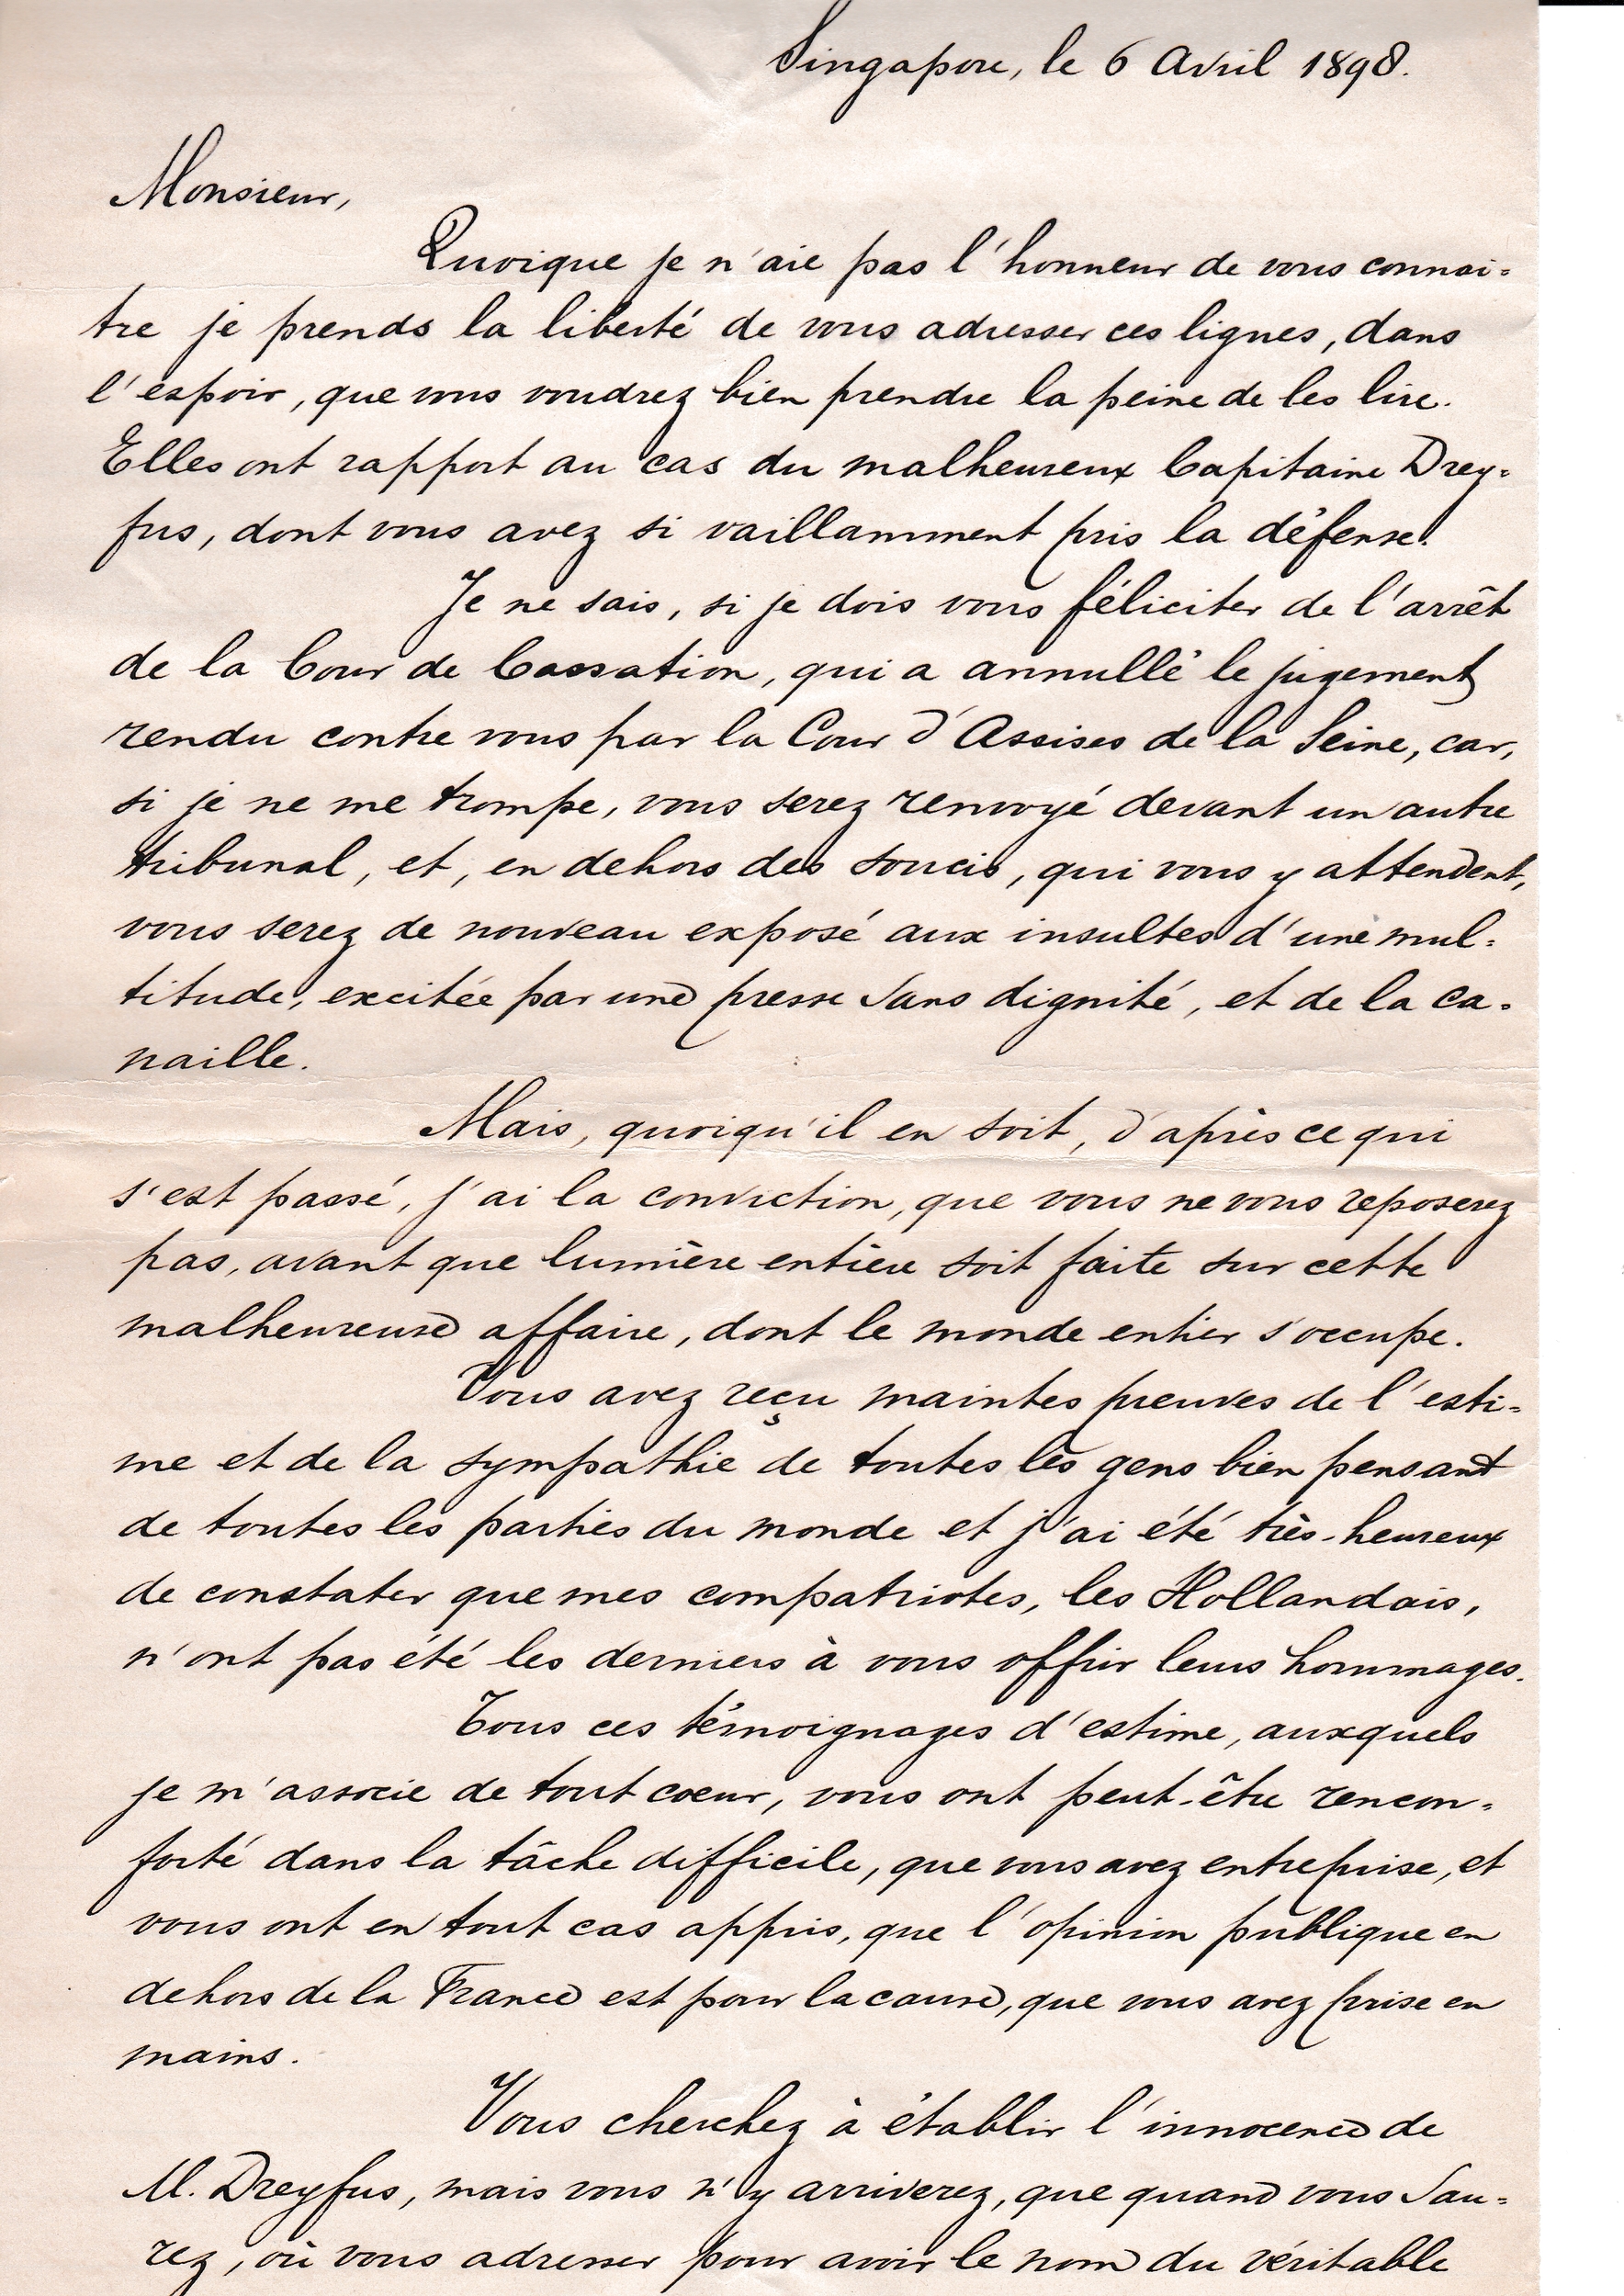 Singapore, le 6 Avril 1898.
Monsieur,
Quoique je n'aie pas l'honneur de vous connai=
tre je prends la liberté de vous adresser ces lignes, dans
l'espoir, que vous voudrez bien prendre la peine de les lire.
Elles ont rapport au cas du malheureux Capitaine Drey=
fus, dont vous avez si vaillamment pris la défense.
Je ne sais, si je dois vous féliciter de l'arrêt
de la Cour de Cassation, qui a annullé le jugement
rendu contre vous par la Cour d'Assises de la Seine, car,
si je ne me trompe, vous serez renvoyé devant un autre
tribunal, et, en dehors des soucis, qui vous y attendent,
vous serez de nouveau exposé aux insultes d'une mul=
titude, excitée par une presse sans dignité, et de la ca=
naille.
Mais, quoiqu'il en soit, d'après ce qui
s'est passé, j'ai la conviction, que vous ne vous reposerez
pas, avant que lumière entière soit faite sur cette
malheureuse affaire, dont le monde entier s'occupe.
Vous avez reçu maintes preuves de l'esti=
me et de la sympathie de toutes les gens bien pensant
de toutes les parties du monde et j'ai été très-heureux
de constater que mes compatriotes, les Hollandais,
n'ont pas été les derniers à vous offrir leurs hommages.
Tous ces témoignages d'estime, auxquels
je m'associe de tout coeur, vous ont peut-être rencon=
forté dans la tâche difficile, que vous avez entreprise, et
vous ont en tout cas appris, que l'opinion publique en
dehors de la France est pour la cause, que vous avez prise en
mains.
Vous cherchez à établir l'innocence de
M. Dreyfus, mais vous n'y arriverez, que quand vous sau=
rez, où vous adresser pour avoir le nom du véritable